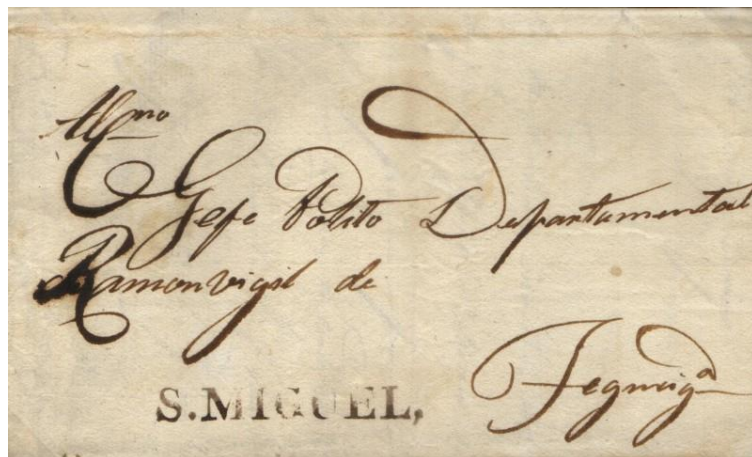 Al C.mo
Gefe Polito Departamental
Ramon vigil de
Teguciga
S.MIGUEL,